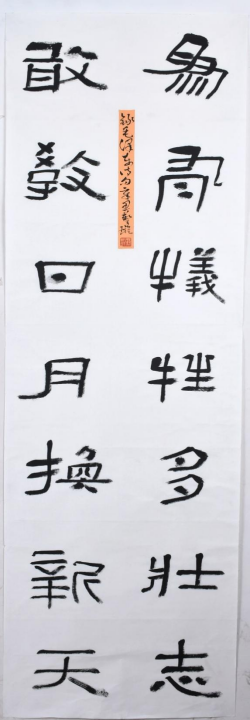 為有犧牲多壯志
敢教日月換新天
錄毛澤東詩句